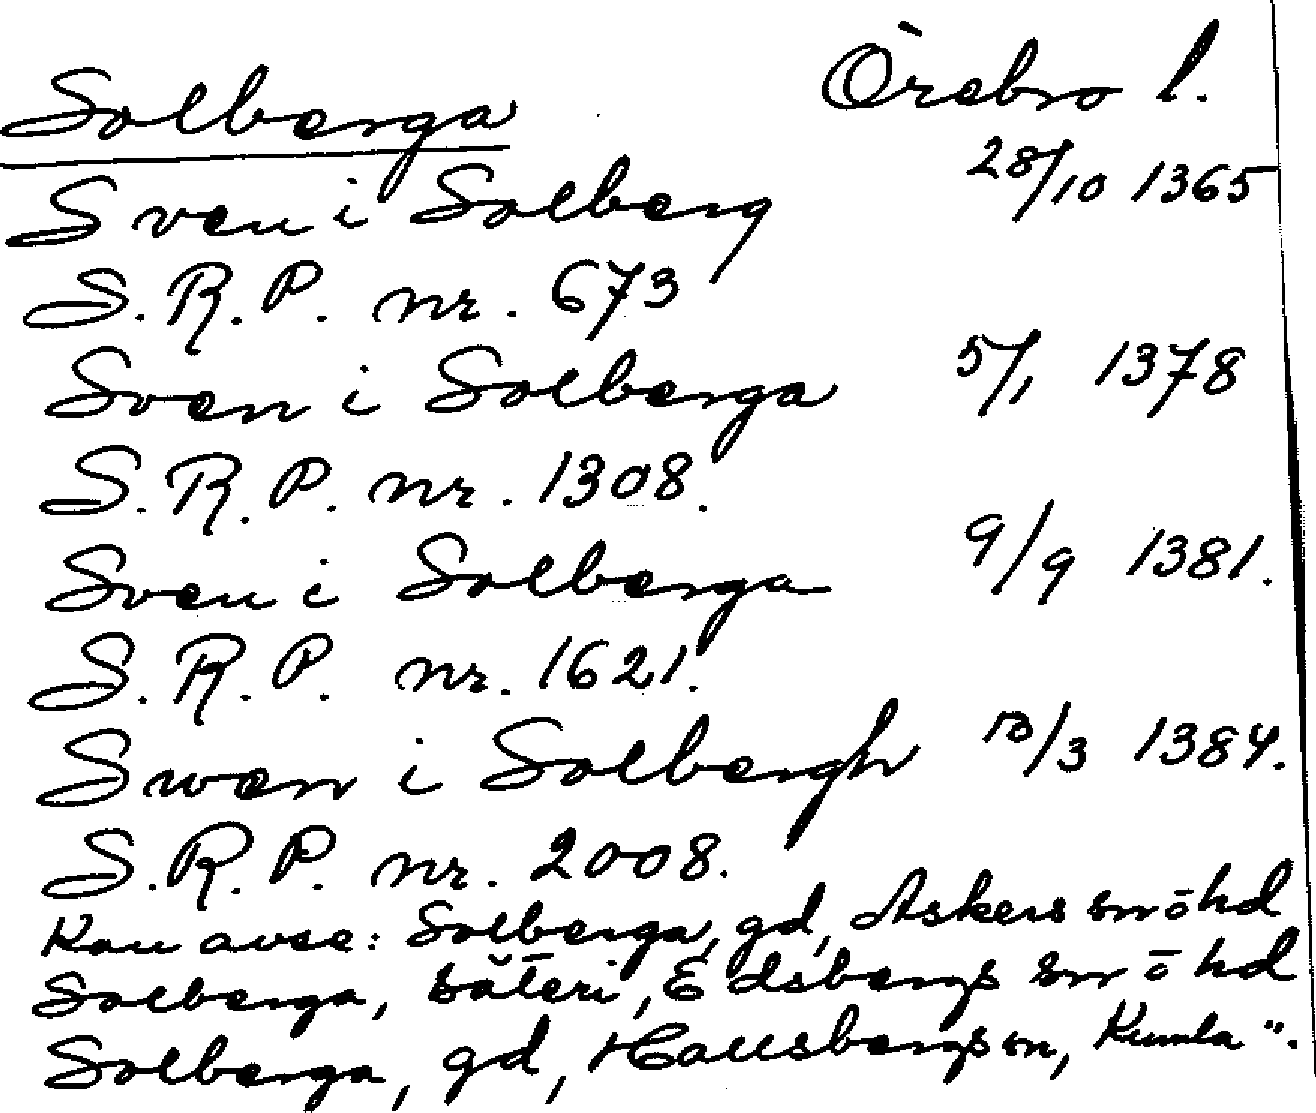 Solberga Örebro l.
Sven i Solberg 28/10 1365
S.R.P. nr. 673
Sven i Solberga 5/1 1378
S.R.P. nr. 1308.
Sven i Solberga 9/9 1381.
S.R.P. nr. 1621.
Swen i Solbergh 13/3 1384.
S.R.P. nr. 2008.
Kan avse: Solberga, gd, Askers sn o hd
Solberga, säteri, Edsbergs sn o hd
Solberga, gd, Hallsbergs sn, Kumla ".